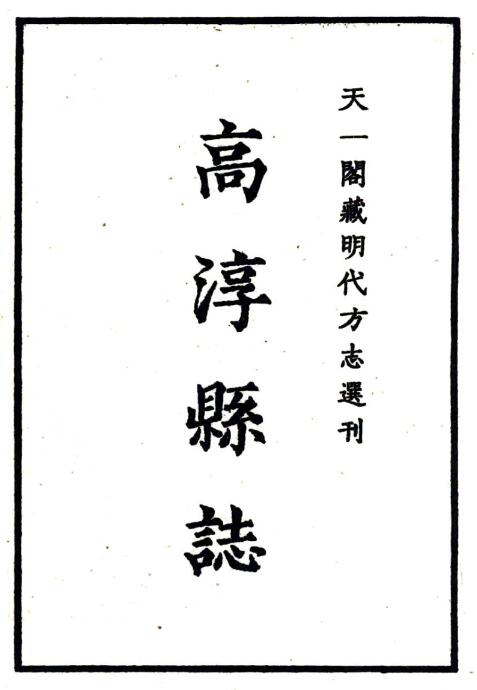 天一閣藏明代方志選刊
高淳縣誌